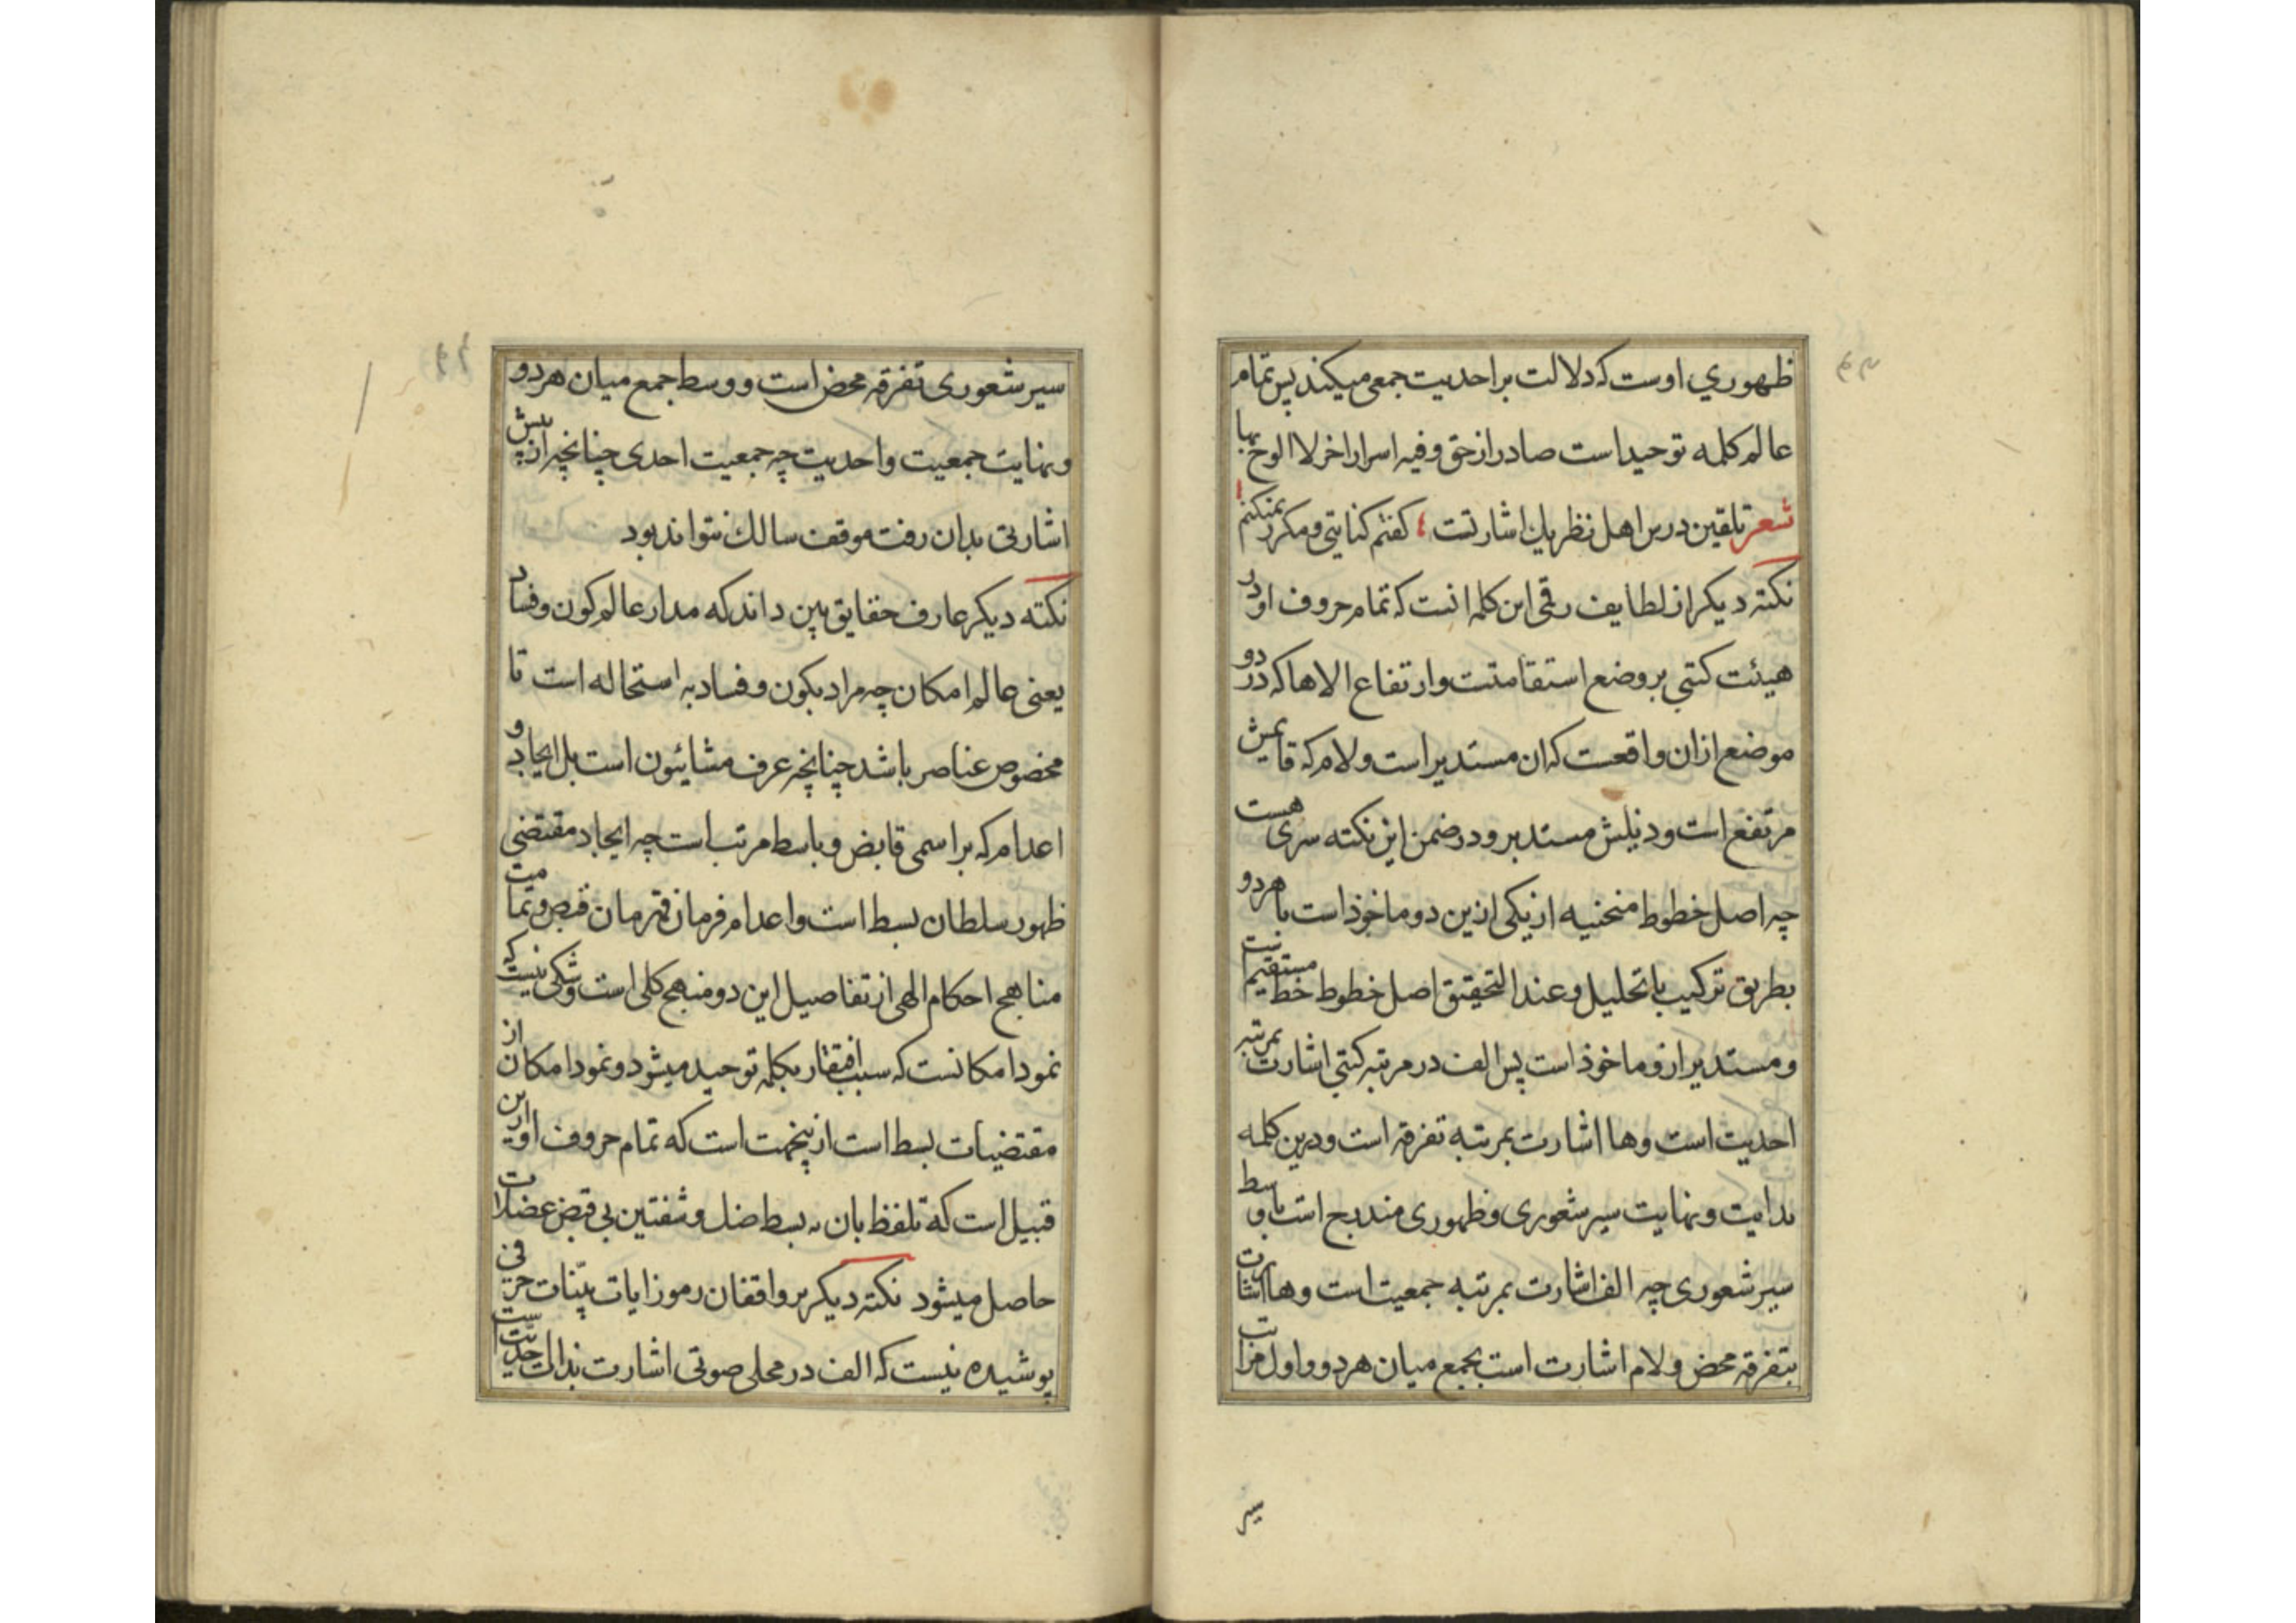 ظهوري اوست که دلالت بر احدیت جمعی میکند پس تمام
عالم کلمه توحید است صادر از حق وفیه اسرار اخر لا الوح بها
شعر تلقین درس اهل نظر یك اشارتست کفتم کنایتی و مکرر نمیکنم
نکته دیکر از لطایف رقمی این کلمه انست که تمام حروف او در
هیئت کتبی بر وضع استقامتست وارتفاع الا ها که در دو
موضع ازان واقعست که ان مستدیر است ولام که قایمش
مرتفع است وذیلش مستدیر و در ضمن این نکته سری هست
چه اصل خطوط منحنیه از یکی ازین دو ماخوذ است یا هر دو
بطریق ترکیب یا تحلیل وعند التحقیق اصل خطوط خط مستقیم است
ومستدیر ازو ماخوذ است پس الف در مرتبه کتبی اشارت بمرتبه
احدیت است وها اشارت بمرتبه تفرقه است ودرین کلمه
بدایت ونهایت سیر شعوری وظهوری مندرج است با وسط
سیر شعوری چه الف اشارت بمرتبه جمعیت است وها اشارت
بتفرقه محض ولام اشارت است بجمع میان هر دو واول مراتب
سیر
سیر شعوری تفرقه محض است ووسط جمع میان هر دو
ونهایت جمعیت واحدیت چه جمعیت احدی چنانچه از پیش
اشارتی بدان رفت موقف سالك نتواند بود
نکته دیکر عارف حقایق بین داند که مدار عالم کون وفساد
یعنی عالم امکان چه مراد بکون وفساد نه استحاله است تا
مخصوص عناصر باشد چنانچه عرف مشائیون است بل ایجاد و
اعدام که بر اسمی قابض وباسط مرتب است چه ایجاد مقتضی
ظهور سلطان بسط است واعدام فرمان قهرمان قبض وتمامت
مناهج احکام الهی از تفاصیل این دو منهج کلی است وشکی نیست که
نمود امکانست که سبب افتقار بکلمه توحید میشود ونمود امکان از
مقتضیات بسط است ازینجهت است که تمام حروف او ازین
قبیل است که تلفظ بان به بسط ضل وشفتین بی قبض عضلات
حاصل میشود نکته دیکر بر واقفان رموز ایات بینات حرفی
پوشیده نیست که الف در محلی صوتی اشارت بذات احدیت است